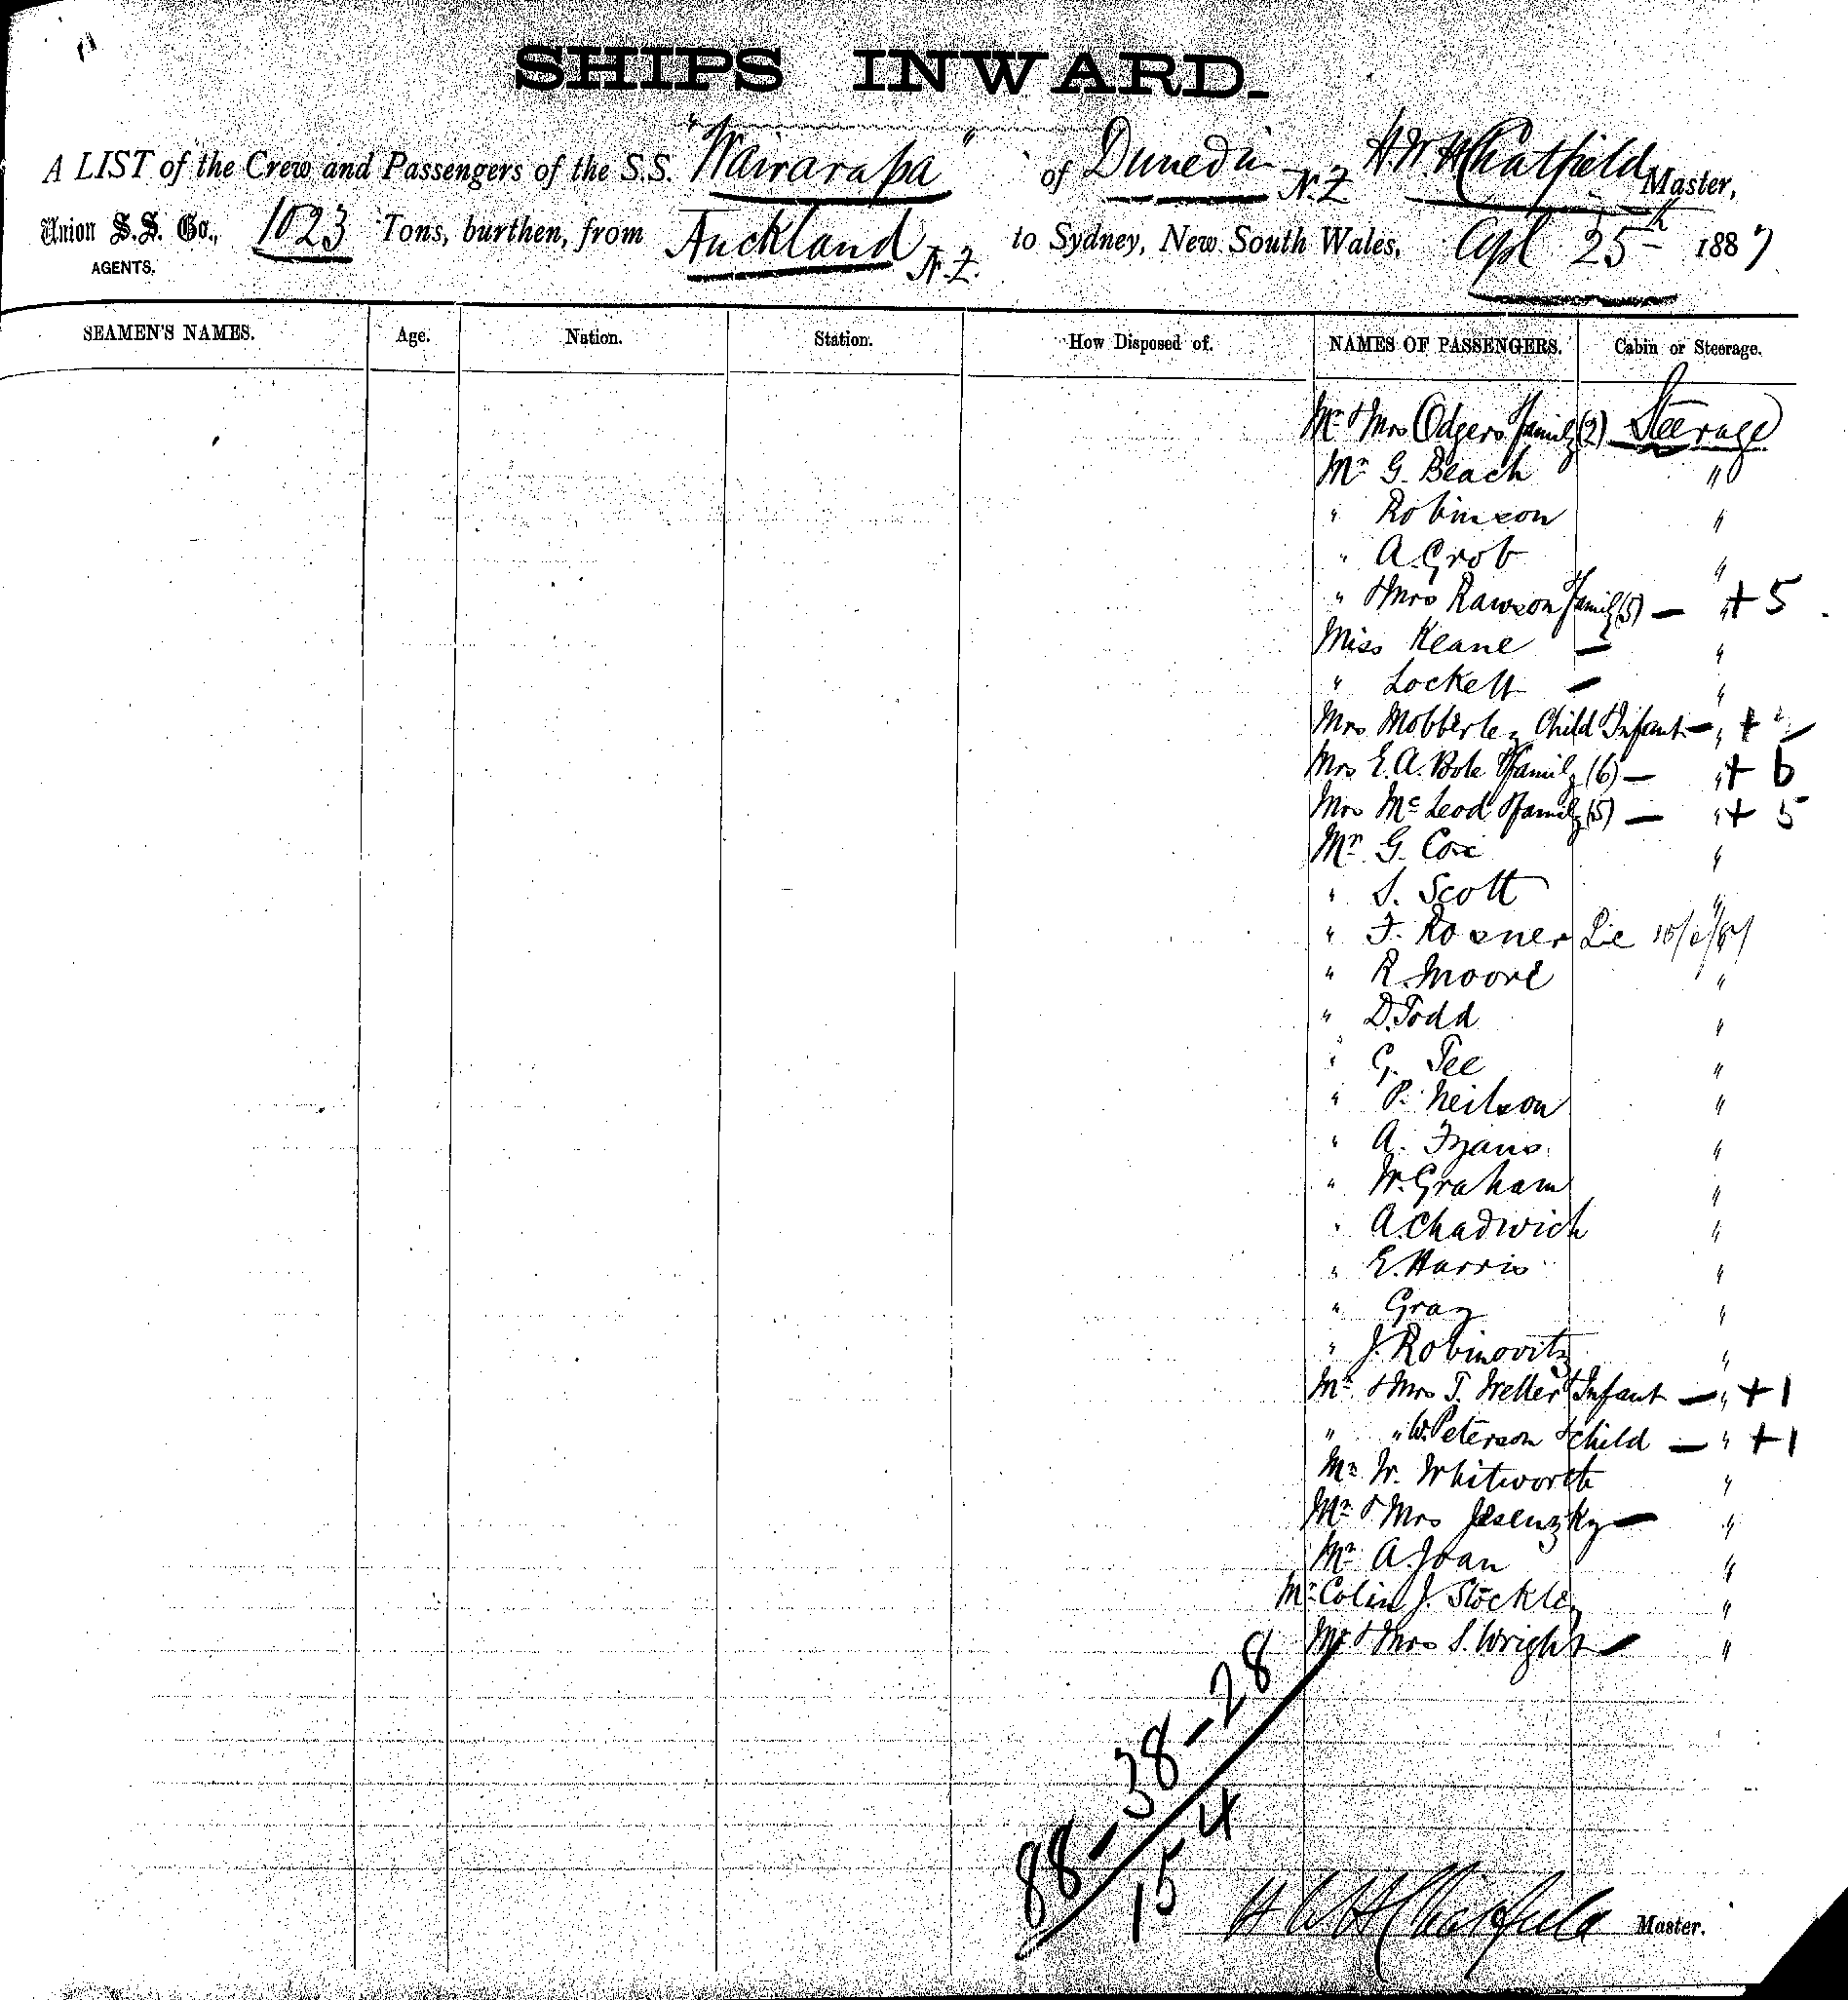 SHIPS INWARD.
A LIST of the Crew and Passengers of the S.S. "Wairarapa" of Dunedin N.Z. H.W.H. Chatfield Master,
Union S.S. Co., 1023 Tons, burthen, from Auckland N.Z. to Sydney, New South Wales, Apl 25th 1887
AGENTS.
SEAMEN'S NAMES. Age. Nation. Station. How Disposed of. NAMES OF PASSENGERS. Cabin or Steerage.
Mr & Mrs Odgers & family (2) Steerage
Mr G. Beach "
" Robinson "
" A. Grob "
" & Mrs Rawson & family (5) — " + 5
Miss Keane — "
" Lockett — "
Mrs Mobberley Child & Infant — " +
Mrs E.A. Bole & family (6) — " + 6
Mrs McLeod & family (5) — " + 5
Mr G. Cox "
" S. Scott "
" F. Rosner Lic "
" R. Moore "
" D. Todd "
" G. Tee "
" P. Neilson "
" A. "
" W. Graham "
" A. Chadwick "
" E. Harris "
" Gray "
" J. Robinovitz "
Mr & Mrs T. Weller & Infant — " + 1
" " W. Peterson & child — " + 1
Mr W. Whitworth "
Mr & Mrs — "
Mr A. Joan "
Mr Colin J. Stockley "
Mr & Mrs S. Wright — "
88 - 38 - 28
15 4
H W H Chatfield Master.